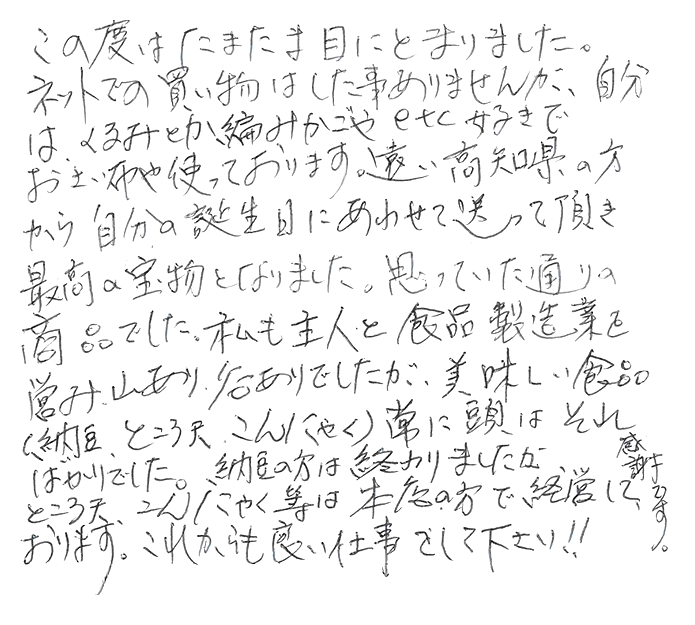 この度はたまたま目にとまりました。
ネットでの買い物はした事ありませんが、自分
は、くるみとか、編みかごや etc 好きで
おさい布や使っております。遠い高知県の方
から自分の誕生日にあわせて送って頂き
最高の宝物となりました。思っていた通りの
商品でした。私も主人と食品製造業を
営み、山あり、谷ありでしたが、美味しい食品
(納豆、ところ天、こんにゃく)常に頭はそれ
ばかりでした。納豆の方は終わりましたが
ところ天、こんにゃく等は本店の方で、経営して、
おります。これからも良い仕事をして下さい!!
感謝です。